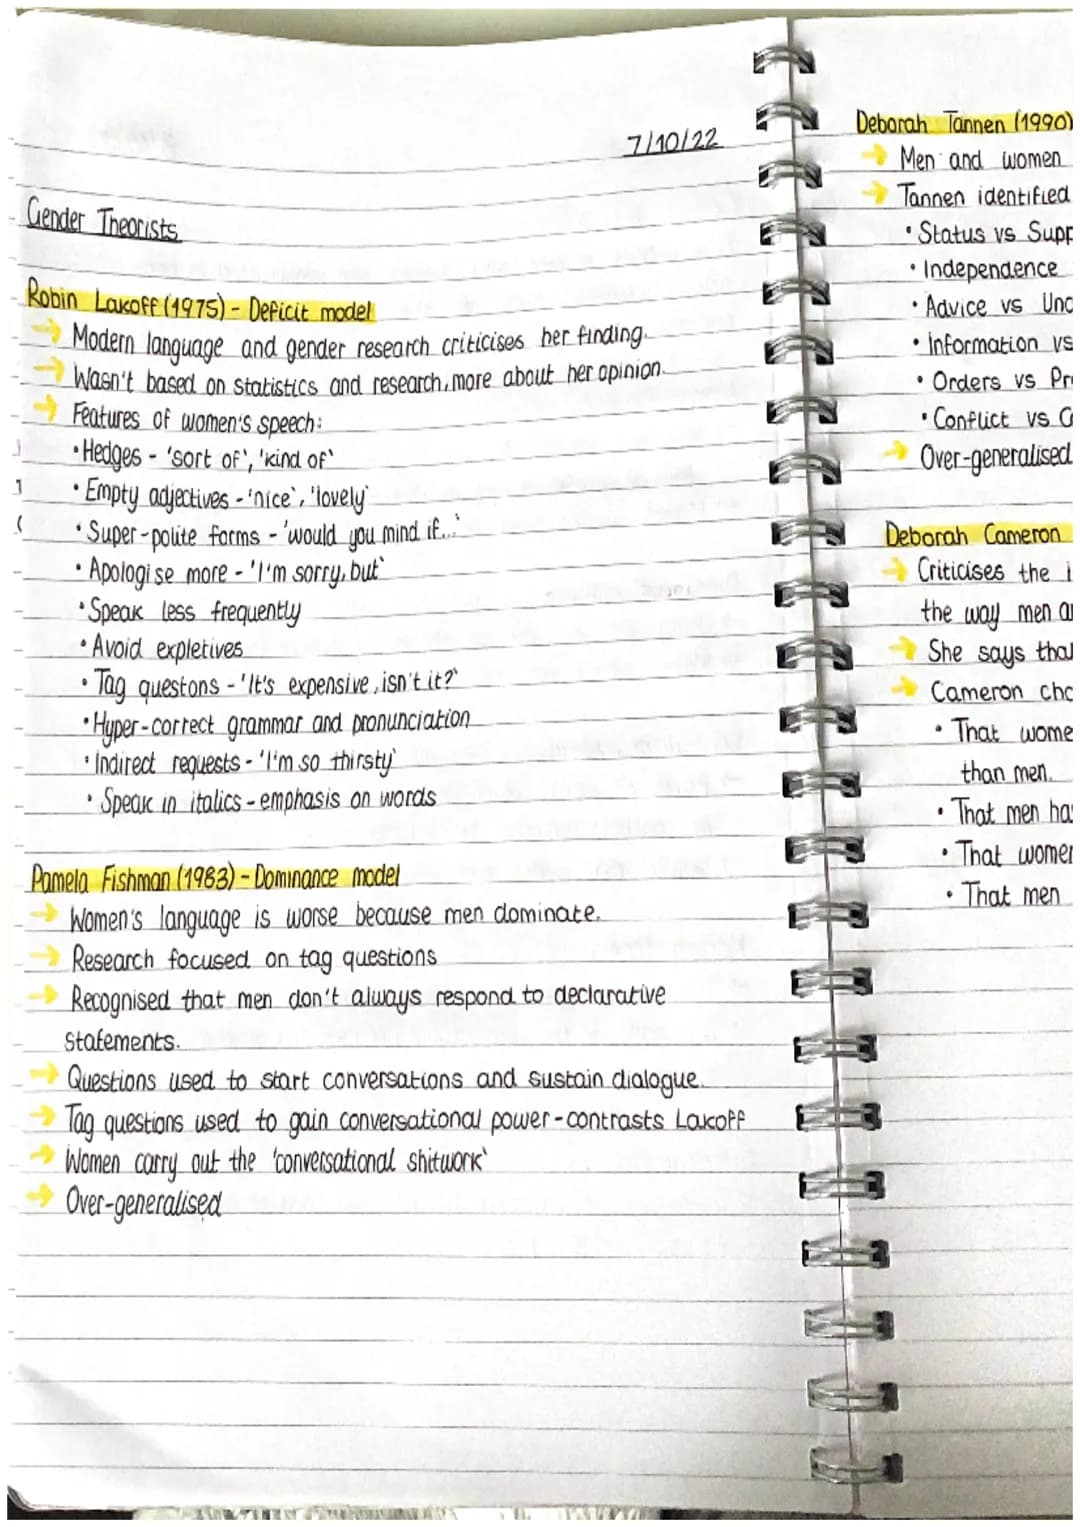 7/10/22
Gender Theorists
Robin Lakoff (1975) - Deficit model
→ Modern language and gender research criticises her finding.
→ Wasn't based on statistics and research, more about her opinion.
→ Features of women's speech:
• Hedges - 'sort of', 'kind of'
• Empty adjectives - 'nice', 'lovely'
• Super-polite forms - 'would you mind if...'
• Apologise more - 'I'm sorry, but'
• Speak less frequently
• Avoid expletives
• Tag questons - 'It's expensive, isn't it?'
• Hyper-correct grammar and pronunciation
• Indirect requests - 'I'm so thirsty'
• Speak in italics - emphasis on words
Pamela Fishman (1983) - Dominance model
→ Women's language is worse because men dominate.
→ Research focused on tag questions
→ Recognised that men don't always respond to declarative
statements.
→ Questions used to start conversations and sustain dialogue.
→ Tag questions used to gain conversational power - contrasts Lakoff
→ Women carry out the 'conversational shitwork'
→ Over-generalised
Deborah Tannen (1990)
→ Men and women
→ Tannen identified
• Status vs Supp
• Independence
• Advice vs Und
• Information vs
• Orders vs Pr
• Conflict vs C
→ Over-generalised
Deborah Cameron
→ Criticises the i
the way men a
→ She says tha
→ Cameron cha
• That wome
than men.
• That men ha
• That women
• That men